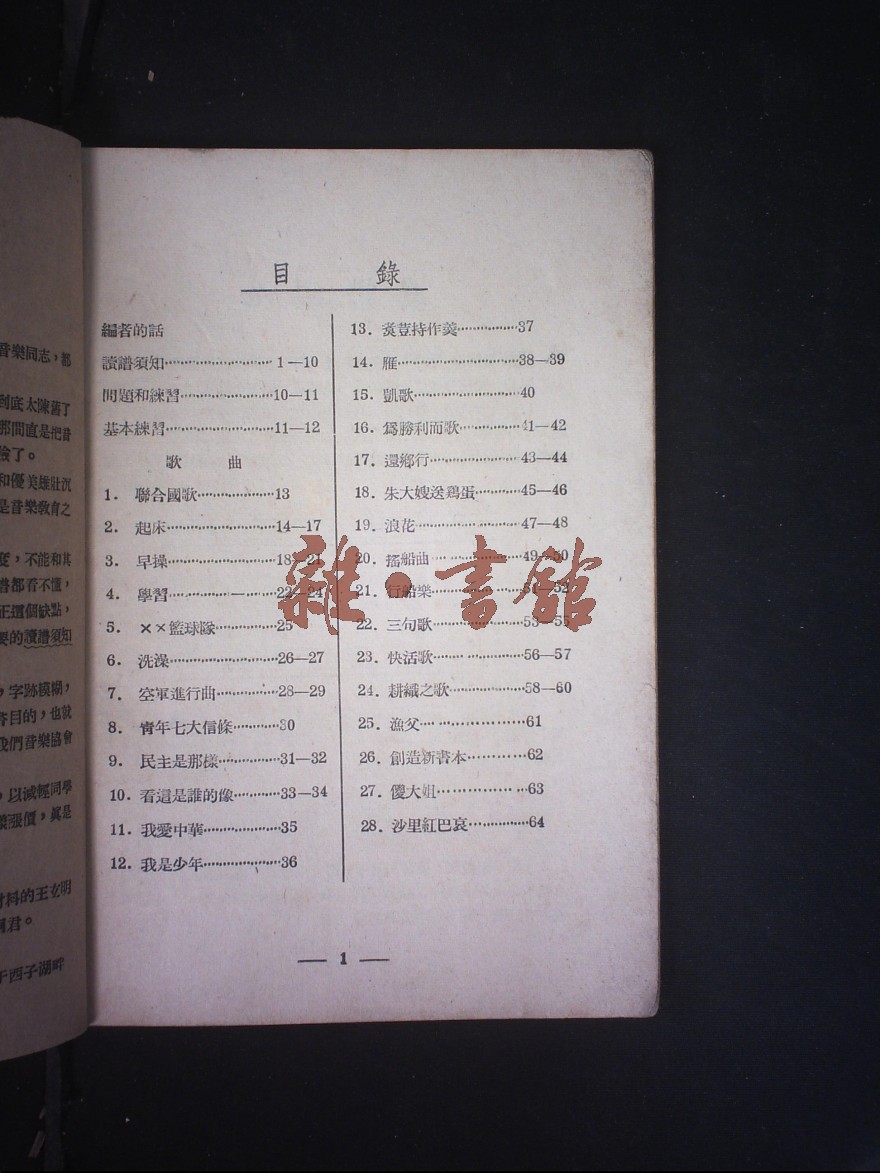 音樂同志，都
到底太陳舊了
那間直是把音
險了。
和優美雄壯沉
是音樂敎育之
度，不能和其
譜都看不懂，
正這個缺點，
要的讀譜須知
，字跡模糊，
目的，也就
我們音樂協會
，以減輕同學
漲價，眞是
材料的王玄明
君。
于西子湖畔
目 錄
編者的話
讀譜須知…………………1—10
問題和練習………………10—11
基本練習…………………11—12
歌 曲
1. 聯合國歌………………13
2. 起床……………………14—17
3. 早操……………………18—21
4. 學習……………………22—24
5. ××籃球隊……………25
6. 洗澡……………………26—27
7. 空軍進行曲……………28—29
8. 靑年七大信條…………30
9. 民主是那樣……………31—32
10. 看這是誰的像…………33—34
11. 我愛中華………………35
12. 我是少年………………36
13. 煑荳持作羹……………37
14. 雁………………………38—39
15. 凱歌……………………40
16. 爲勝利而歌……………41—42
17. 還鄉行…………………43—44
18. 朱大嫂送鷄蛋…………45—46
19. 浪花……………………47—48
20. 搖船曲…………………49—50
21. 行船樂…………………51—52
22. 三句歌…………………53—55
23. 快活歌…………………56—57
24. 耕織之歌………………58—60
25. 漁父……………………61
26. 創造新書本……………62
27. 傻大姐…………………63
28. 沙里紅巴哀……………64
雜·書館
— 1 —